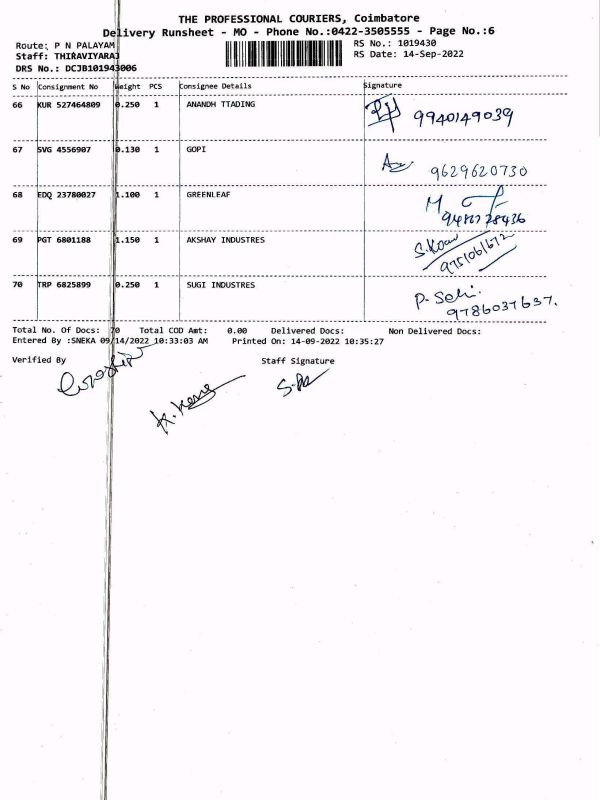 THE PROFESSIONAL COURIERS, Coimbatore
Delivery Runsheet - MO - Phone No.:0422-3505555 - Page No.:6
Route: P N PALAYAM RS No.: 1019430
Staff: THIRAVIYARAJ RS Date: 14-Sep-2022
DRS No.: DCJB101943006
S No Consignment No Weight PCS Consignee Details Signature
66 KUR 527464809 0.250 1 ANANDH TTADING
9940149039
67 SVG 4556907 0.130 1 GOPI
9629620730
68 EDQ 23780027 1.100 1 GREENLEAF
M
69 PGT 6801188 1.150 1 AKSHAY INDUSTRES
9751061672
70 TRP 6825899 0.250 1 SUGI INDUSTRES
9786037637.
Total No. Of Docs: 70 Total COD Amt: 0.00 Delivered Docs: Non Delivered Docs:
Entered By :SNEKA 09/14/2022 10:33:03 AM Printed On: 14-09-2022 10:35:27
Verified By Staff Signature